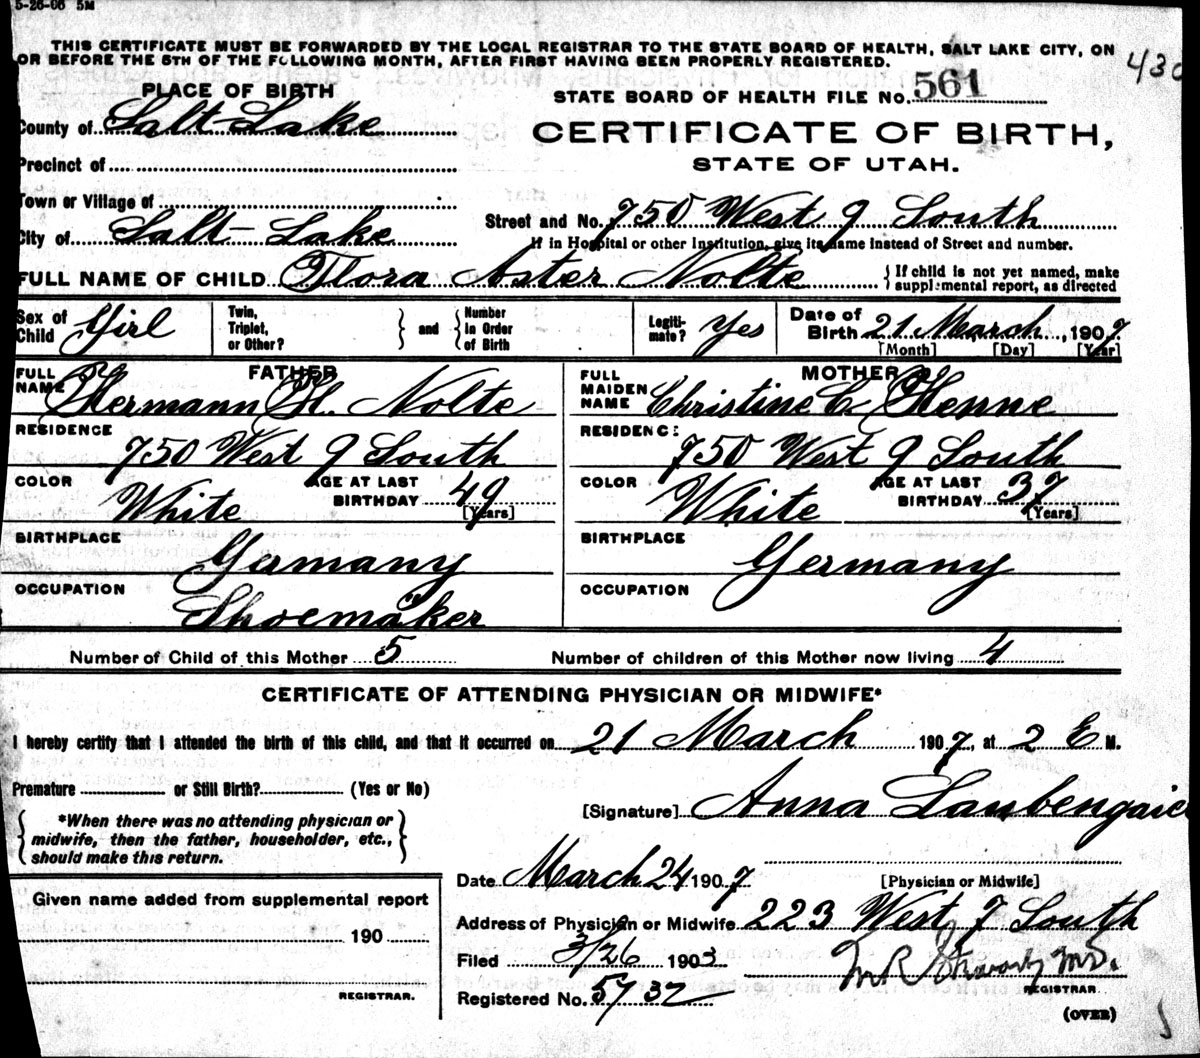 5-26-06 5M
THIS CERTIFICATE MUST BE FORWARDED BY THE LOCAL REGISTRAR TO THE STATE BOARD OF HEALTH, SALT LAKE CITY, ON
OR BEFORE THE 5TH OF THE FOLLOWING MONTH, AFTER FIRST HAVING BEEN PROPERLY REGISTERED.
430
PLACE OF BIRTH
STATE BOARD OF HEALTH FILE No. 561
County of Salt Lake
CERTIFICATE OF BIRTH,
STATE OF UTAH.
Precinct of
Town or Village of
City of Salt-Lake
Street and No. 750 West 9 South
If in Hospital or other Institution, give its name instead of Street and number.
FULL NAME OF CHILD Flora Aster Nolte
{ If child is not yet named, make
supplemental report, as directed
Sex of Child Girl
Twin, Triplet, or Other? } and { Number in Order of Birth
Legiti-mate? Yes
Date of Birth 21 March, 1907
[Month] [Day] [Year]
FATHER
FULL NAME Hermann H. Nolte
MOTHER
FULL MAIDEN NAME Christine C. Henne
RESIDENCE 750 West 9 South
RESIDENCE 750 West 9 South
COLOR White AGE AT LAST BIRTHDAY 49 [Years]
COLOR White AGE AT LAST BIRTHDAY 37 [Years]
BIRTHPLACE Germany
BIRTHPLACE Germany
OCCUPATION Shoemaker
OCCUPATION
Number of Child of this Mother 5 Number of children of this Mother now living 4
CERTIFICATE OF ATTENDING PHYSICIAN OR MIDWIFE*
I hereby certify that I attended the birth of this child, and that it occurred on 21 March 1907, at 2 E M.
Premature or Still Birth? (Yes or No)
[Signature] Anna
{ *When there was no attending physician or
midwife, then the father, householder, etc.,
should make this return. }
Date March 24 1907
[Physician or Midwife]
Given name added from supplemental report
190
REGISTRAR.
Address of Physician or Midwife 223 West 7 South
Filed 3/26 190
M.D.
REGISTRAR
Registered No. 5732
(OVER)